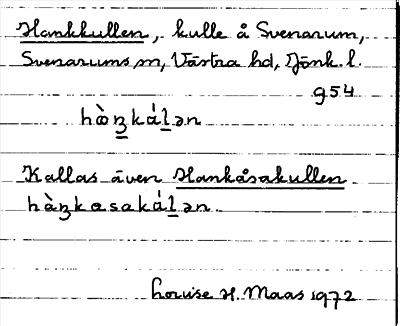 Hankkullen, kulle å Svenarum,
Svenarums sn, Västra hd, Jönk. l.
954
hàŋkál̲ən
Kallas även Hankåsakullen
hàŋkɵsakál̲ən
Louise H. Maas 1972